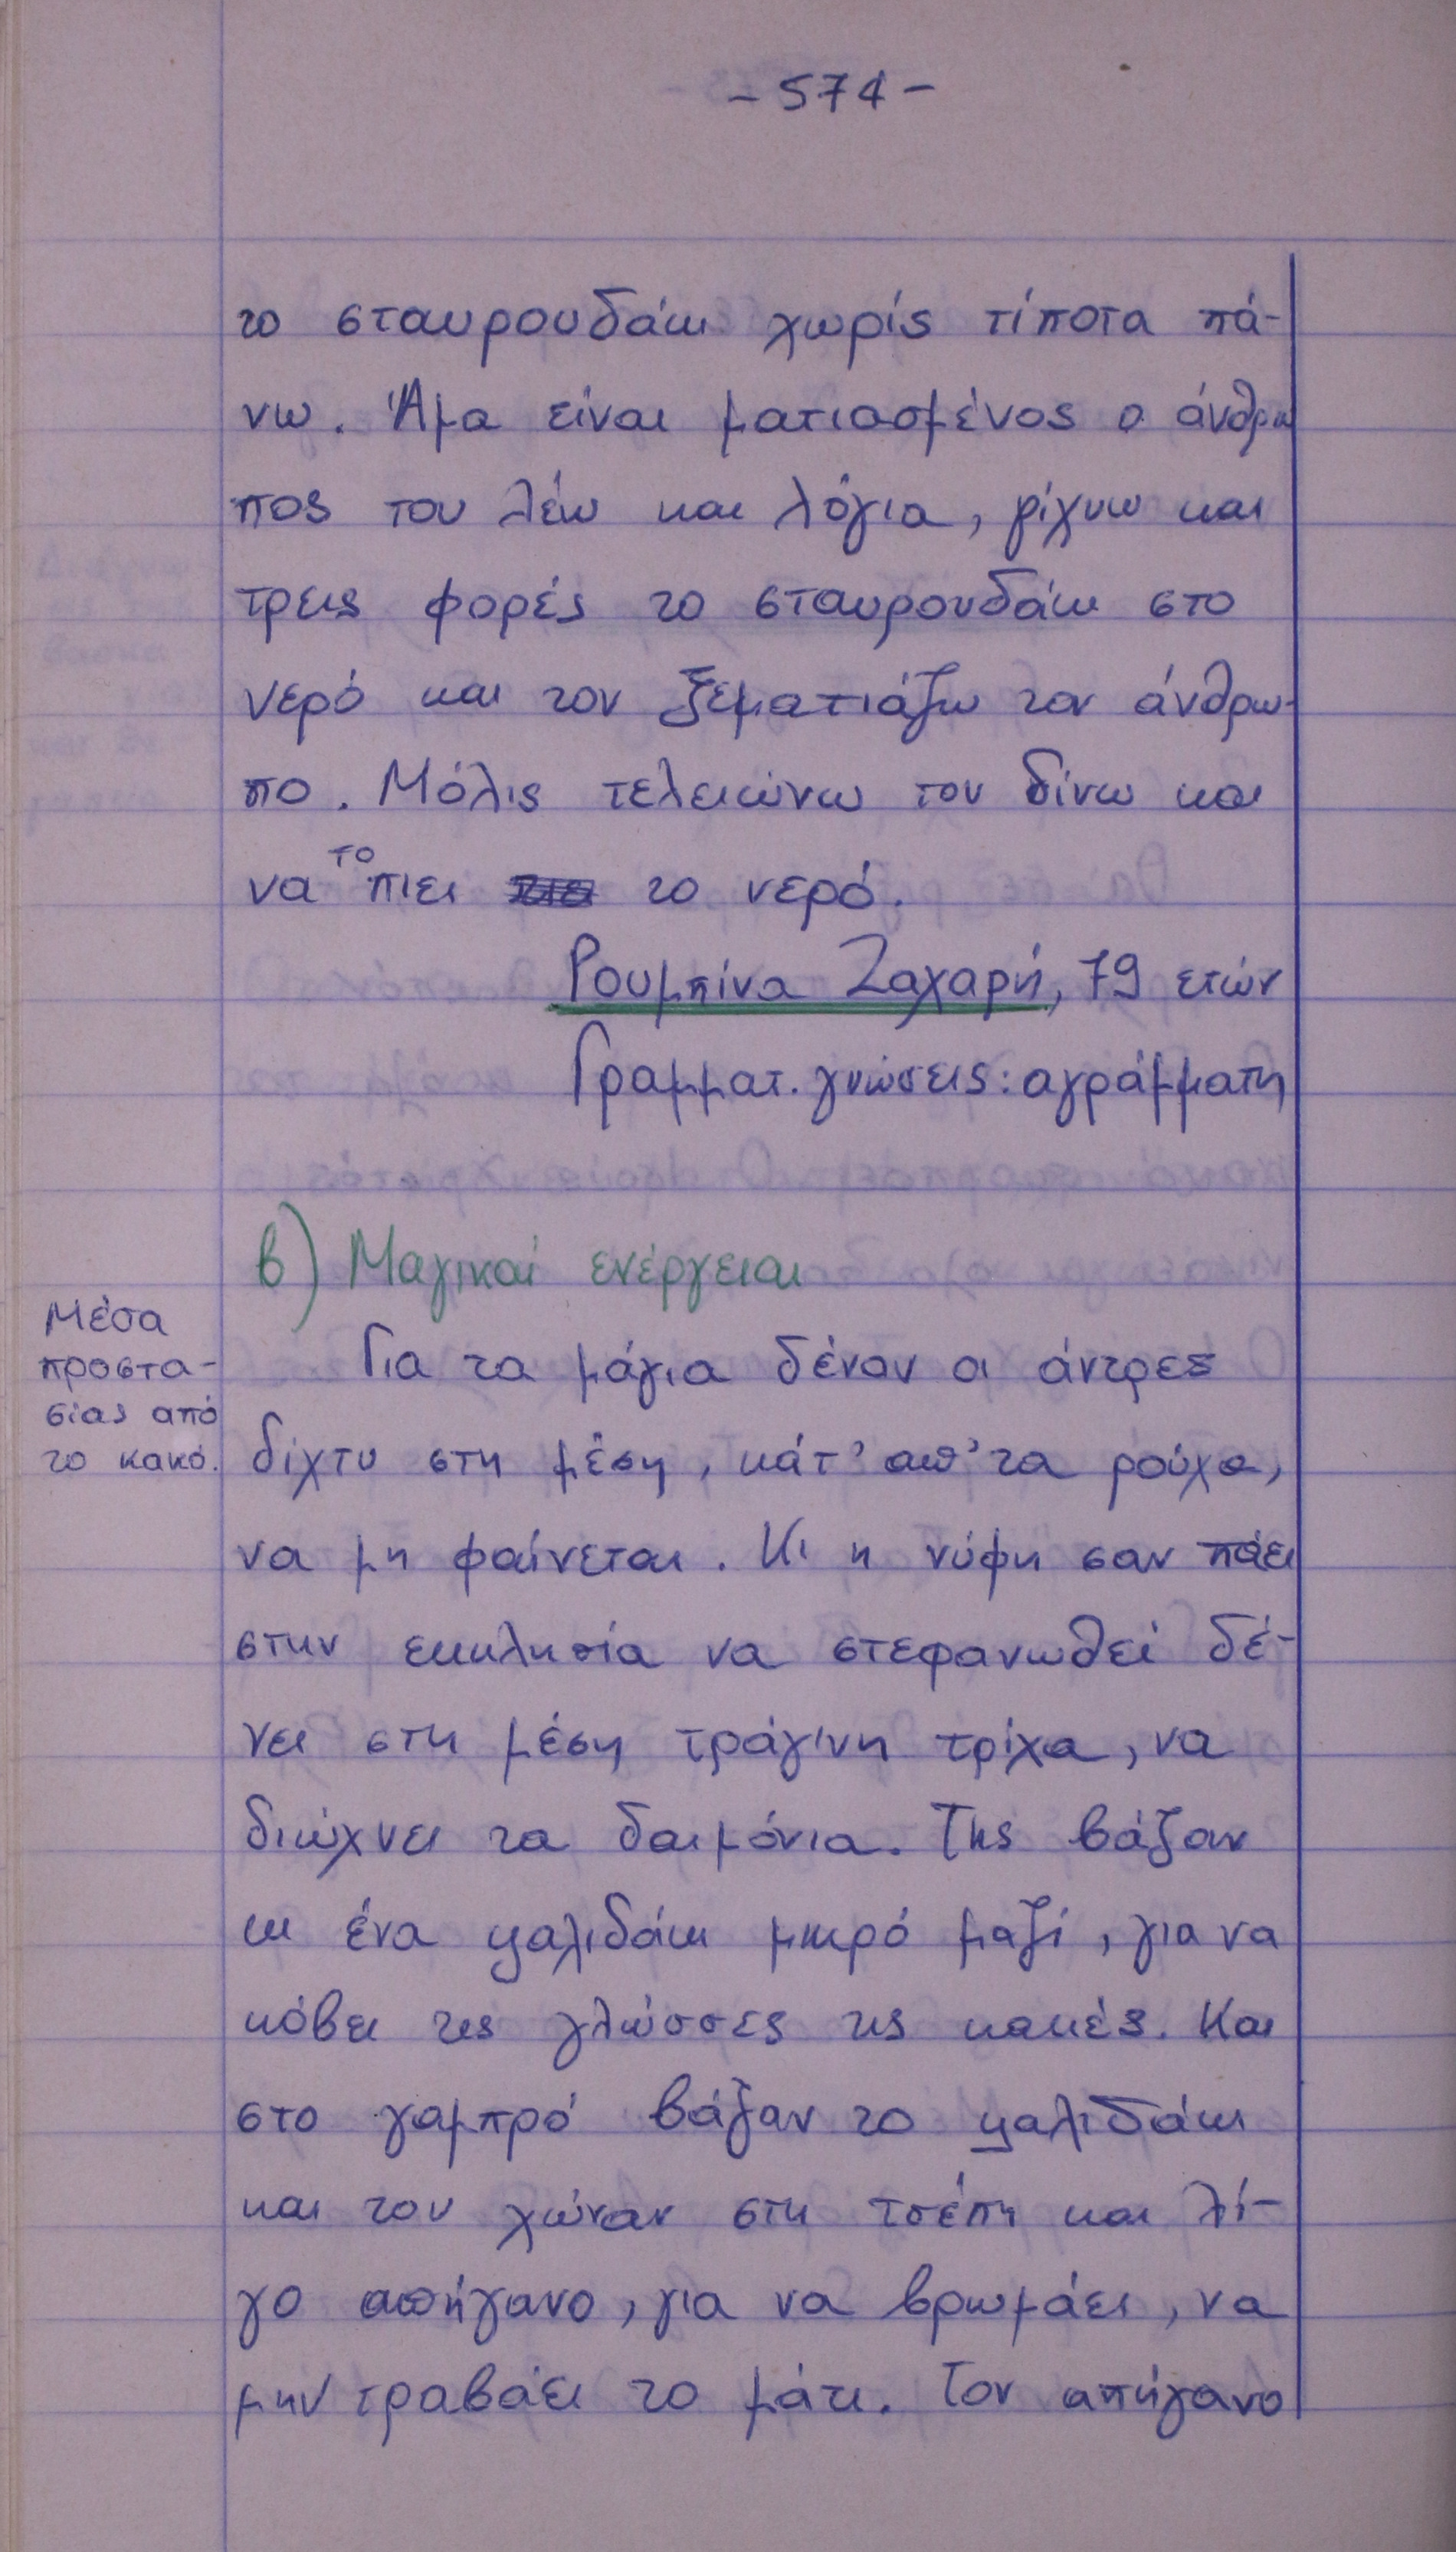 - 574 -
το σταυρουδάκι χωρίς τίποτα πά-
νω. Άμα είναι ματιασμένος ο άνθρω
πος του λέω και λόγια, ρίχνω και
τρεις φορές το σταυρουδάκι στο
νερό και τον ξεματιάζω τον άνθρω-
πο. Μόλις τελειώνω του δίνω και
να το πιει το νερό.
Ρουμπίνα Ζαχαρή, 79 ετών
Γραμματ. γνώσεις: αγράμματη
β) Μαγικαί ενέργειαι
Μέσα
προστα-
σίας από
το κακό.
Για τα μάγια δέναν οι άντρες
δίχτυ στη μέση, κάτ' απ' τα ρούχα,
να μη φαίνεται. Κι η νύφη σαν πάει
στην εκκλησία να στεφανωθεί δέ-
νει στη μέση τράγινη τρίχα, να
διώχνει τα δαιμόνια. Της βάζαν
κι ένα ψαλιδάκι μικρό μαζί, για να
κόβει τις γλώσσες τις κακές. Και
στο γαμπρό βάζαν το ψαλιδάκι
και του χώναν στη τσέπη και λί-
γο απήγανο, για να βρωμάει, να
μην τραβάει το μάτι. Τον απήγανο